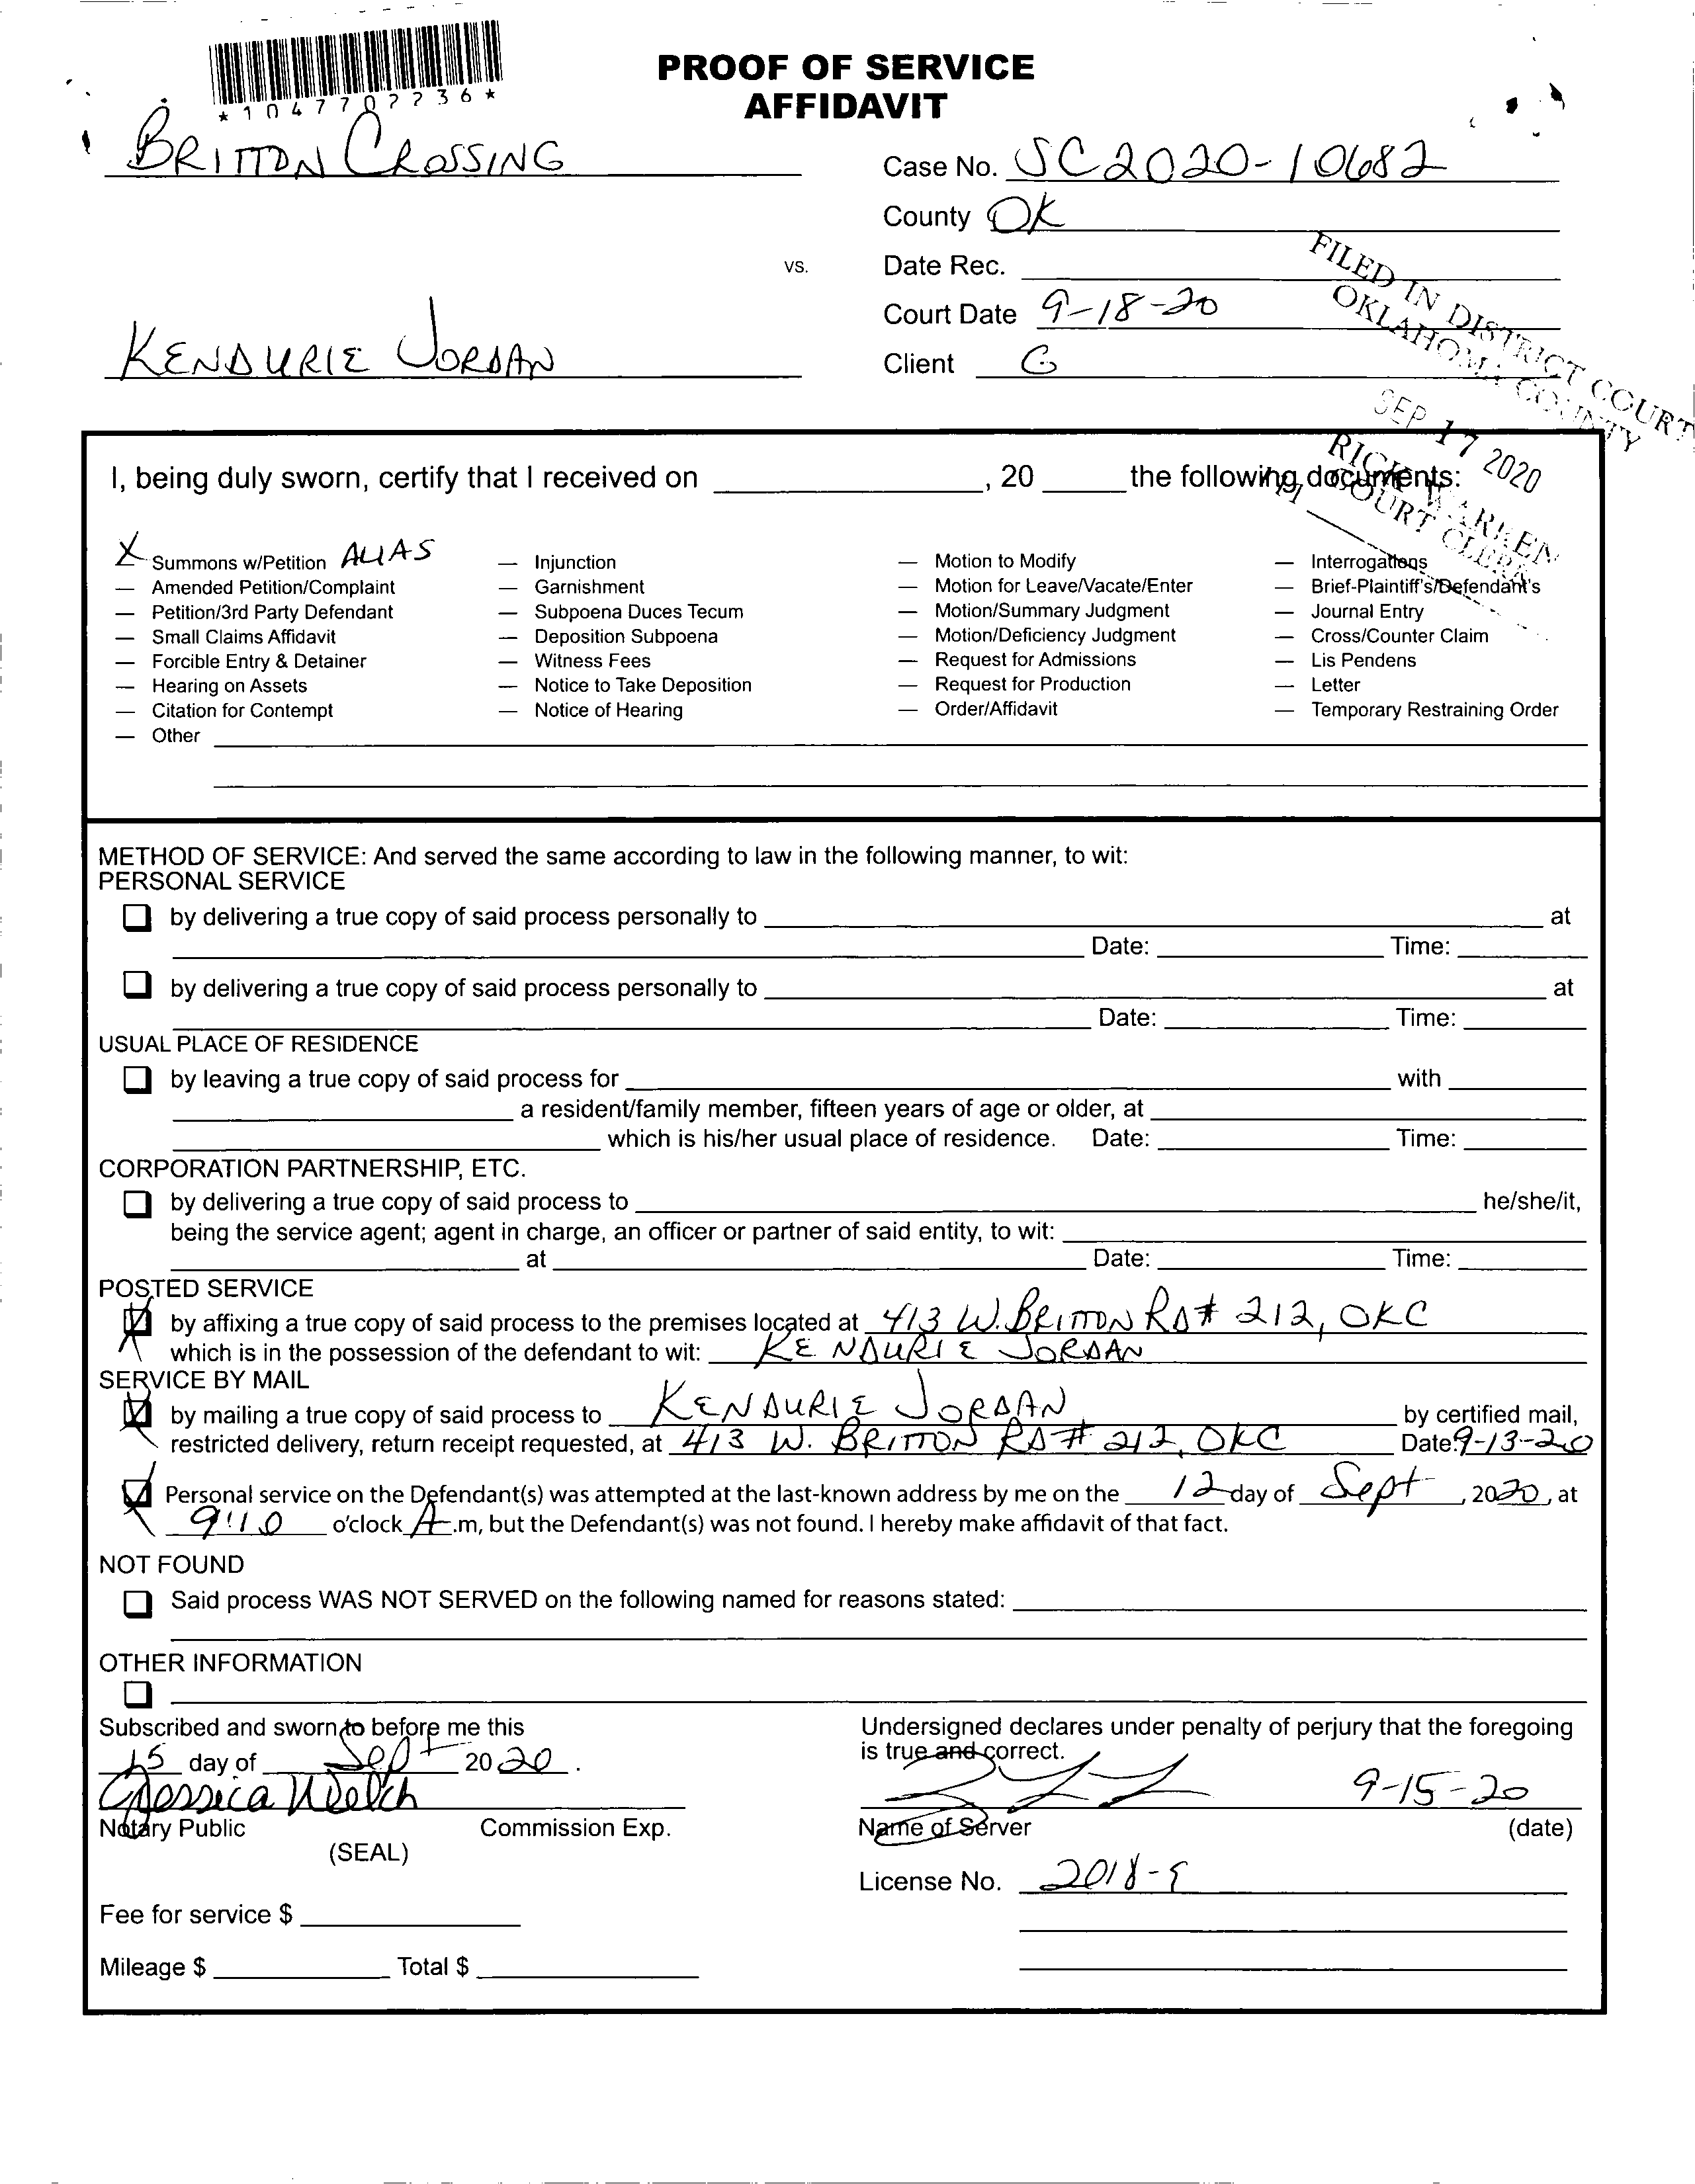 *1047702236*
PROOF OF SERVICE
AFFIDAVIT
BRITTON CROSSING
Case No. SC2020-10682
County OK
vs.
Date Rec.
Court Date 9-18-20
KENDURIE JORDAN
Client G
FILED IN DISTRICT COURT
OKLAHOMA COUNTY
SEP 17 2020
RICK WARREN
COURT CLERK
I, being duly sworn, certify that I received on ____, 20 ____ the following documents:
X Summons w/Petition ALIAS
— Amended Petition/Complaint
— Petition/3rd Party Defendant
— Small Claims Affidavit
— Forcible Entry & Detainer
— Hearing on Assets
— Citation for Contempt
— Other
— Injunction
— Garnishment
— Subpoena Duces Tecum
— Deposition Subpoena
— Witness Fees
— Notice to Take Deposition
— Notice of Hearing
— Motion to Modify
— Motion for Leave/Vacate/Enter
— Motion/Summary Judgment
— Motion/Deficiency Judgment
— Request for Admissions
— Request for Production
— Order/Affidavit
— Interrogations
— Brief-Plaintiff's/Defendant's
— Journal Entry
— Cross/Counter Claim
— Lis Pendens
— Letter
— Temporary Restraining Order
METHOD OF SERVICE: And served the same according to law in the following manner, to wit:
PERSONAL SERVICE
by delivering a true copy of said process personally to ____ at
____ Date: ____ Time: ____
by delivering a true copy of said process personally to ____ at
____ Date: ____ Time: ____
USUAL PLACE OF RESIDENCE
by leaving a true copy of said process for ____ with ____
____ a resident/family member, fifteen years of age or older, at ____
____ which is his/her usual place of residence. Date: ____ Time: ____
CORPORATION PARTNERSHIP, ETC.
by delivering a true copy of said process to ____ he/she/it,
being the service agent; agent in charge, an officer or partner of said entity, to wit: ____
____ at ____ Date: ____ Time: ____
POSTED SERVICE
by affixing a true copy of said process to the premises located at 413 W. BRITTON RD # 212, OKC
which is in the possession of the defendant to wit: KENDURIE JORDAN
SERVICE BY MAIL
by mailing a true copy of said process to KENDURIE JORDAN by certified mail,
restricted delivery, return receipt requested, at 413 W. BRITTON RD # 212, OKC Date: 9-13-20
Personal service on the Defendant(s) was attempted at the last-known address by me on the 12 day of Sept, 2020, at
9:10 o'clock A.m, but the Defendant(s) was not found. I hereby make affidavit of that fact.
NOT FOUND
Said process WAS NOT SERVED on the following named for reasons stated: ____
OTHER INFORMATION
Subscribed and sworn to before me this
15 day of Sept 2020.
Jessica Welch
Notary Public Commission Exp.
(SEAL)
Undersigned declares under penalty of perjury that the foregoing
is true and correct.
9-15-20
Name of Server (date)
License No. 2018-9
Fee for service $ ____
Mileage $ ____ Total $ ____